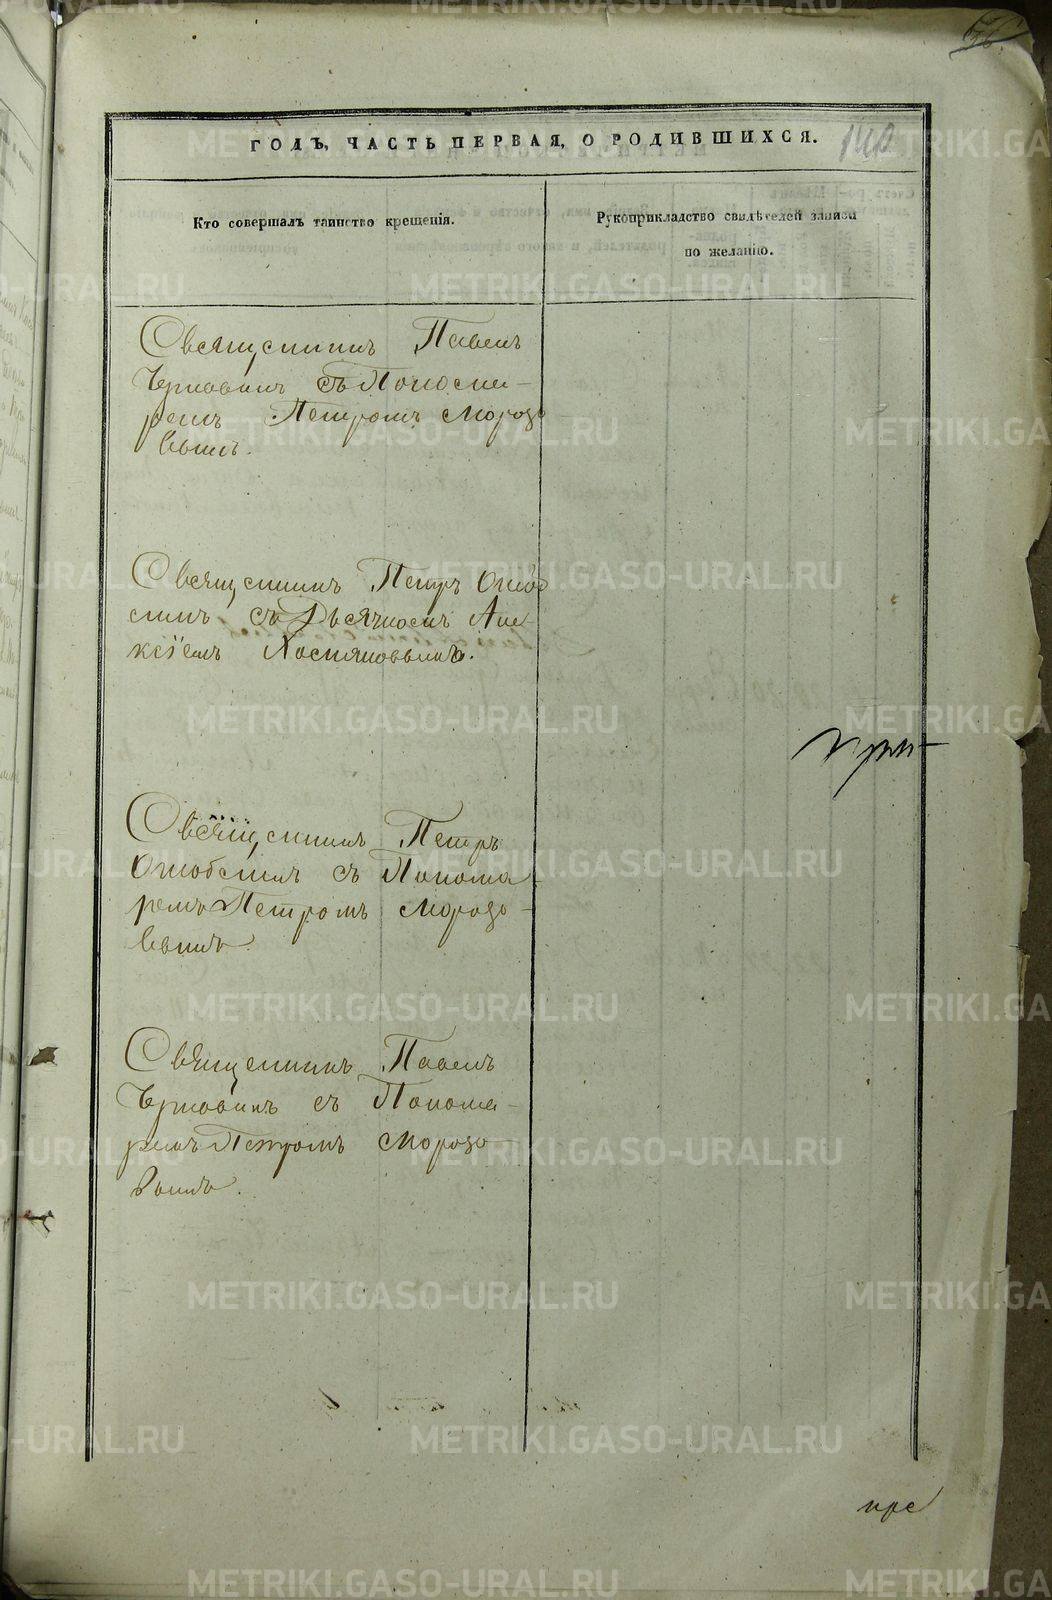 140
ГОДЪ, ЧАСТЬ ПЕРВАЯ, О РОДИВШИХСЯ.
Кто совершалъ таинство крещенія.
Рукоприкладство свидѣтелей записи
по желанію.
Священникъ Павелъ
съ Понома-
ремъ Петромъ Морозо
вымъ.
Священникъ Петръ
съ Дьячкомъ Але-
ксіемъ
Священникъ Петръ
съ Понома-
ремъ Петромъ Морозо-
вымъ.
Священникъ Павелъ
съ Понома-
ремъ Петромъ Морозо
вымъ.
METRIKI.GASO-URAL.RU